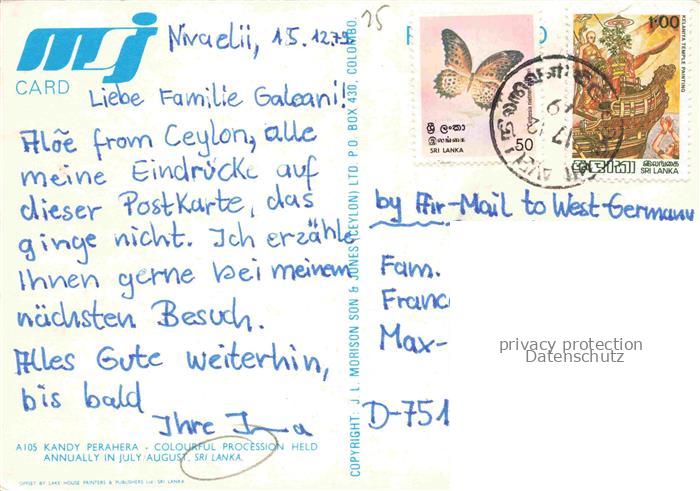 msj
CARD
Nivaelii, 15.12.79
25
Liebe Familie Galeani!
Aloe from Ceylon, alle
meine Eindrücke auf
dieser Postkarte, das
ginge nicht. Ich erzähle
Ihnen gerne bei meinem
nächsten Besuch.
Alles Gute weiterhin,
bis bald
Ihre
A105 KANDY PERAHERA - COLOURFUL PROCESSION HELD
ANNUALLY IN JULY AUGUST, SRI LANKA.
OFFSET BY LAKE HOUSE PRINTERS & PUBLISHERS Ltd SRI LANKA
COPYRIGHT: J. L. MORISON SON & JONES (CEYLON) LTD. P.O. BOX 430, COLOMBO.
ශ්‍රී ලංකා
இலங்கை
SRI LANKA
50
1.00
KELANIYA TEMPLE PAINTING
ශ්‍රී ලංකා
இலங்கை
SRI LANKA
by Air-Mail to West-Germany
Fam.
Franc
Max-
D-751
privacy protection
Datenschutz